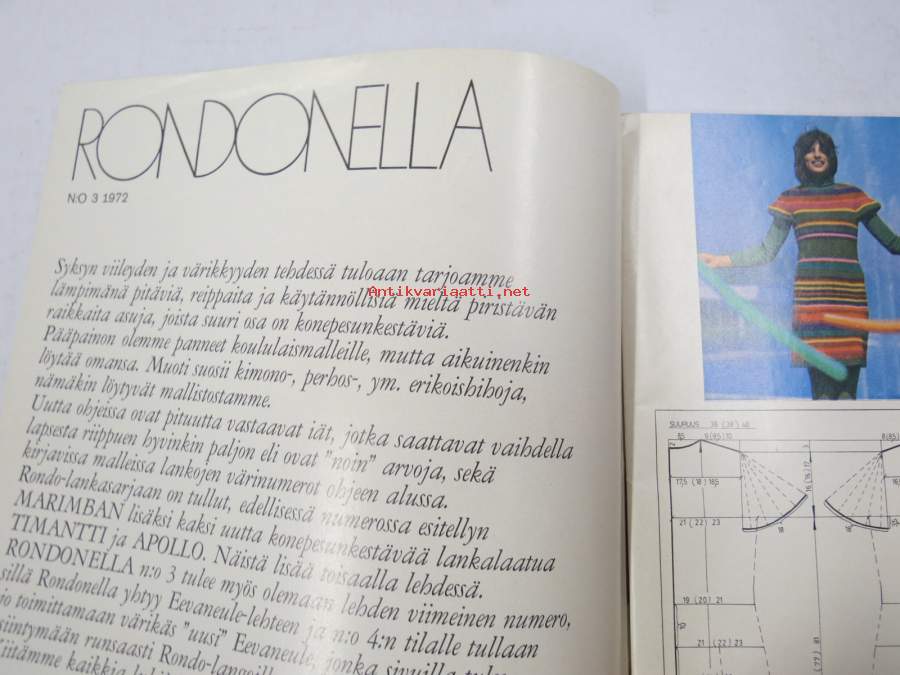 RONDONELLA
N:O 3 1972
Syksyn viileyden ja värikkyyden tehdessä tuloaan tarjoamme
lämpimänä pitäviä, reippaita ja käytännöllisiä mieltä piristävän
raikkaita asuja, joista suuri osa on konepesunkestäviä.
Pääpainon olemme panneet koululaismalleille, mutta aikuinenkin
löytää omansa. Muoti suosii kimono-, perhos-, ym. erikoishihoja,
nämäkin löytyvät mallistostamme.
Uutta ohjeissa ovat pituutta vastaavat iät, jotka saattavat vaihdella
lapsesta riippuen hyvinkin paljon eli ovat "noin" arvoja, sekä
kirjavissa malleissa lankojen värinumerot ohjeen alussa.
Rondo-lankasarjaan on tullut, edellisessä numerossa esitellyn
MARIMBAN lisäksi kaksi uutta konepesunkestävää lankalaatua
TIMANTTI ja APOLLO. Näistä lisää toisaalla lehdessä.
RONDONELLA n:o 3 tulee myös olemaan lehden viimeinen numero,
sillä Rondonella yhtyy Eevaneule-lehteen ja n:o 4:n tilalle tullaan
jo toimittamaan värikäs "uusi" Eevaneule, jonka sivuilla
runsaasti
kaikkia
Antikvariaatti.net
SUURUUS 38 (39) 40
8,5 9 (8,5) 10
17,5 (18) 18,5
21 (22) 23
16 (16) 17
18
18
19 (20) 21
21 (22) 23